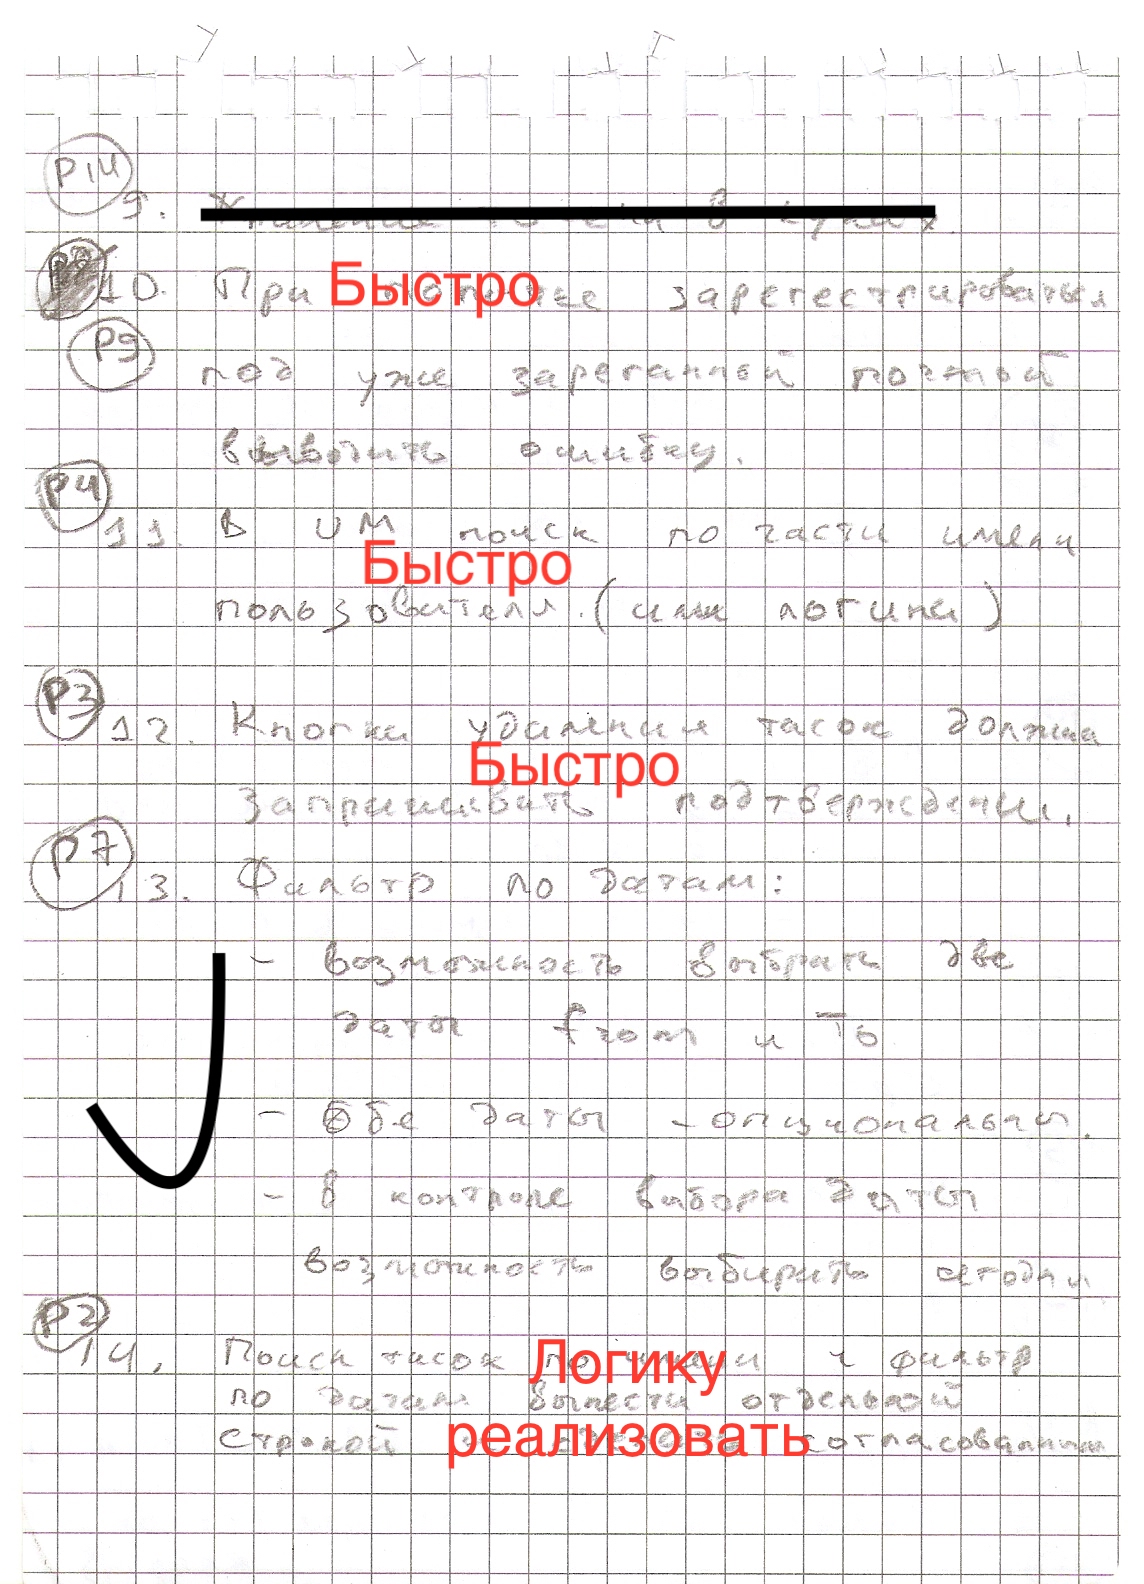 P14
9.
10. При Быстро зарегестрироваться
P9
под уже зареганной почтой
выводить ошибку.
P4
11. В UM поиск по части имени
Быстро
пользователя. (или логина)
P3
12. Кнопка удаления тасок должна
Быстро
запрашивать подтверждение.
P7
13. Фильтр по датам:
- возможность выбрать две
даты from и To
- Обе даты - опциональны.
- в контроле выбора даты
возможность выбирать сегодня
P2
14. Поиск тасок по имени и фильтр
Логику
по датам вынести отдельной
строкой согласованным
реализовать